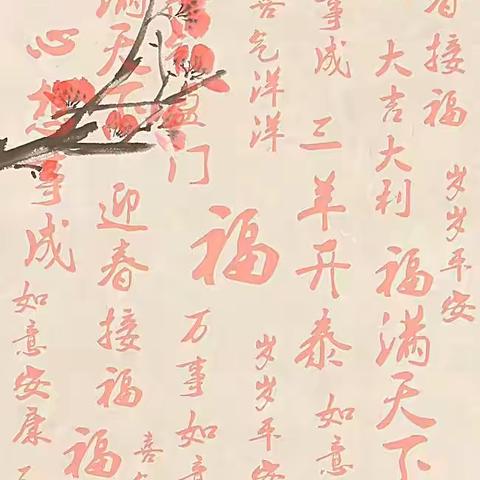 春接福
岁岁平安
大吉大利
福满天下
事成
三羊开泰
如意
喜气洋洋
岁岁平安
福
盈门
万事如意
喜
满天下
迎春接福
福
心想事成
如意安康